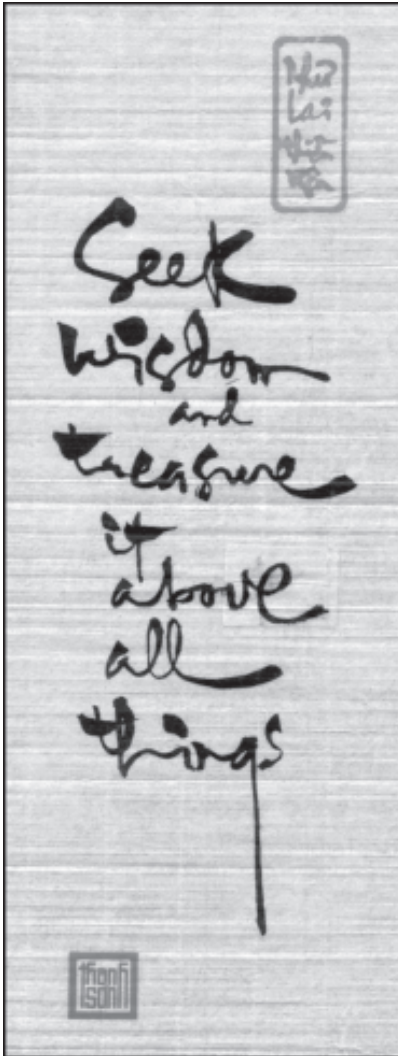 Như
Lai
Seek
wisdom
and
treasure
it
above
all
things
thanh
sơn